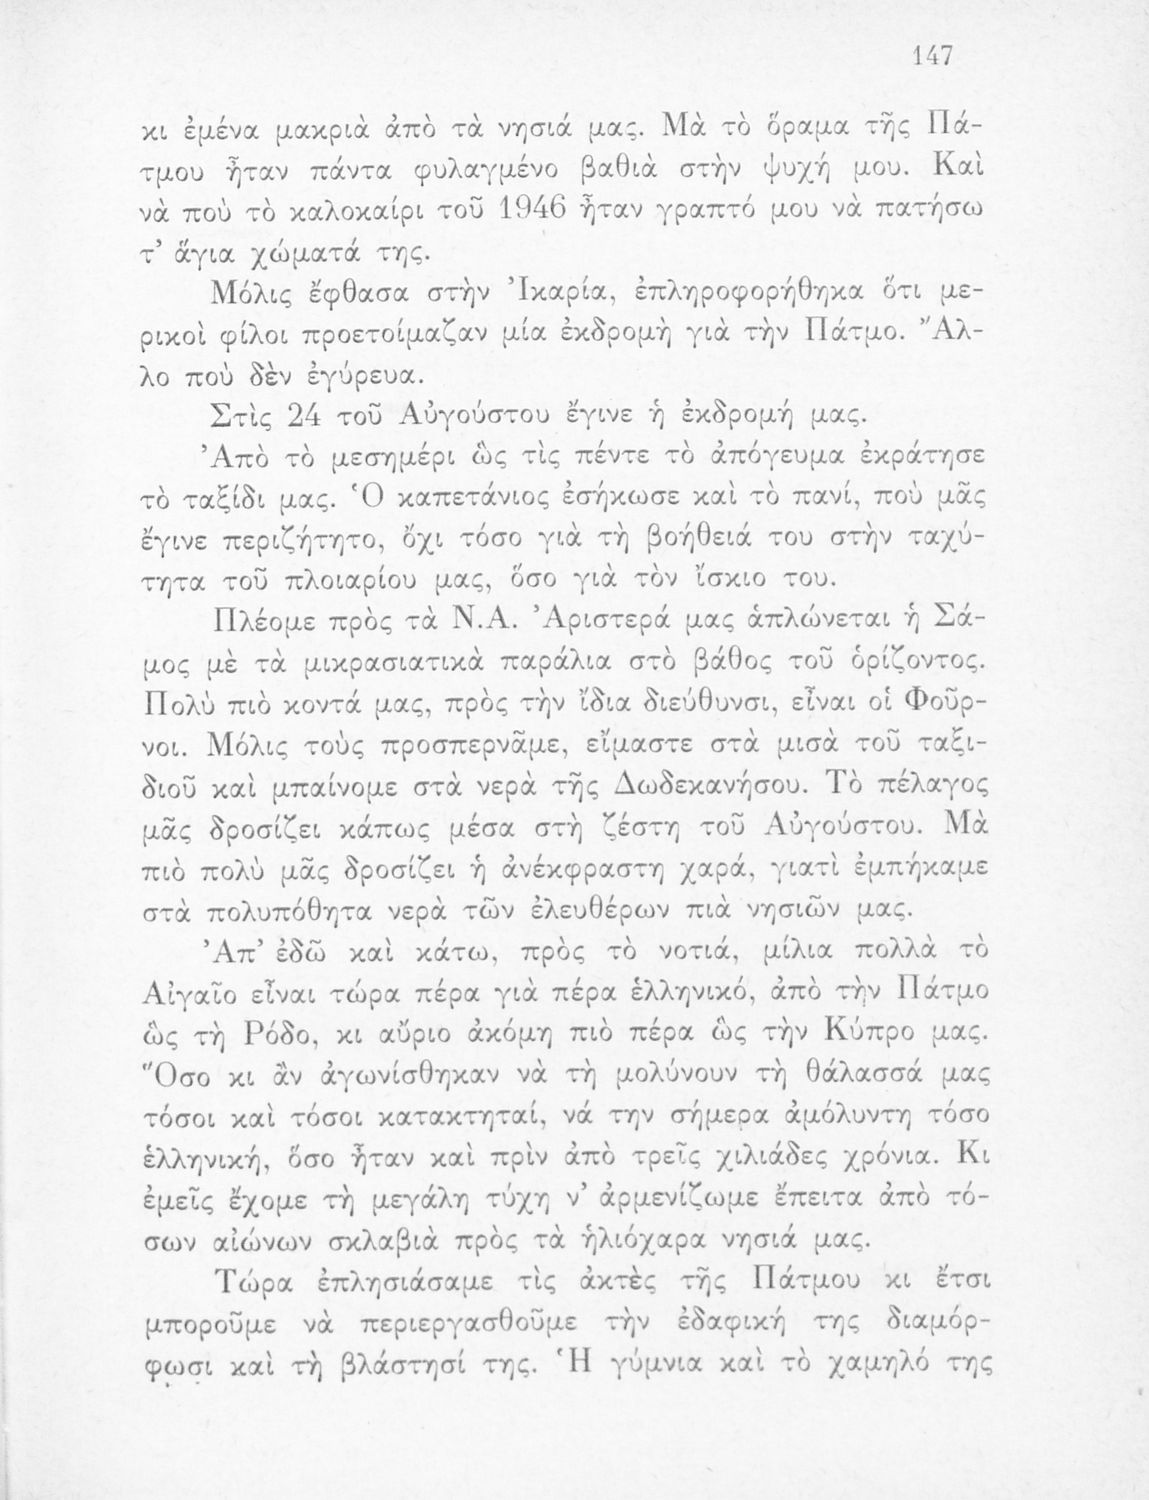 147
κι ἐμένα μακριὰ ἀπὸ τὰ νησιά μας. Μὰ τὸ ὅραμα τῆς Πά-
τμου ἦταν πάντα φυλαγμένο βαθιὰ στὴν ψυχή μου. Καὶ
νὰ ποὺ τὸ καλοκαίρι τοῦ 1946 ἦταν γραπτό μου νὰ πατήσω
τ’ ἅγια χώματά της.
Μόλις ἔφθασα στὴν Ἰκαρία, ἐπληροφορήθηκα ὅτι με-
ρικοὶ φίλοι προετοίμαζαν μία ἐκδρομὴ γιὰ τὴν Πάτμο. Ἄλ-
λο ποὺ δὲν ἐγύρευα.
Στὶς 24 τοῦ Αὐγούστου ἔγινε ἡ ἐκδρομή μας.
Ἀπὸ τὸ μεσημέρι ὣς τὶς πέντε τὸ ἀπόγευμα ἐκράτησε
τὸ ταξίδι μας. Ὁ καπετάνιος ἐσήκωσε καὶ τὸ πανί, ποὺ μᾶς
ἔγινε περιζήτητο, ὄχι τόσο γιὰ τὴ βοήθειά του στὴν ταχύ-
τητα τοῦ πλοιαρίου μας, ὅσο γιὰ τὸν ἴσκιο του.
Πλέομε πρὸς τὰ Ν.Α. Ἀριστερά μας ἁπλώνεται ἡ Σά-
μος μὲ τὰ μικρασιατικὰ παράλια στὸ βάθος τοῦ ὁρίζοντος.
Πολὺ πιὸ κοντά μας, πρὸς τὴν ἴδια διεύθυνσι, εἶναι οἱ Φοῦρ-
νοι. Μόλις τοὺς προσπερνᾶμε, εἴμαστε στὰ μισὰ τοῦ ταξι-
διοῦ καὶ μπαίνομε στὰ νερὰ τῆς Δωδεκανήσου. Τὸ πέλαγος
μᾶς δροσίζει κάπως μέσα στὴ ζέστη τοῦ Αὐγούστου. Μὰ
πιὸ πολὺ μᾶς δροσίζει ἡ ἀνέκφραστη χαρά, γιατὶ ἐμπήκαμε
στὰ πολυπόθητα νερὰ τῶν ἐλευθέρων πιὰ νησιῶν μας.
Ἀπ’ ἐδῶ καὶ κάτω, πρὸς τὸ νοτιά, μίλια πολλὰ τὸ
Αἰγαῖο εἶναι τώρα πέρα γιὰ πέρα ἑλληνικό, ἀπὸ τὴν Πάτμο
ὣς τὴ Ρόδο, κι αὔριο ἀκόμη πιὸ πέρα ὣς τὴν Κύπρο μας.
Ὅσο κι ἂν ἀγωνίσθηκαν νὰ τὴ μολύνουν τὴ θάλασσά μας
τόσοι καὶ τόσοι κατακτηταί, νά την σήμερα ἀμόλυντη τόσο
ἑλληνική, ὅσο ἦταν καὶ πρὶν ἀπὸ τρεῖς χιλιάδες χρόνια. Κι
ἐμεῖς ἔχομε τὴ μεγάλη τύχη ν’ ἀρμενίζωμε ἔπειτα ἀπὸ τό-
σων αἰώνων σκλαβιὰ πρὸς τὰ ἡλιόχαρα νησιά μας.
Τώρα ἐπλησιάσαμε τὶς ἀκτὲς τῆς Πάτμου κι ἔτσι
μποροῦμε νὰ περιεργασθοῦμε τὴν ἐδαφική της διαμόρ-
φωσι καὶ τὴ βλάστησί της. Ἡ γύμνια καὶ τὸ χαμηλό της